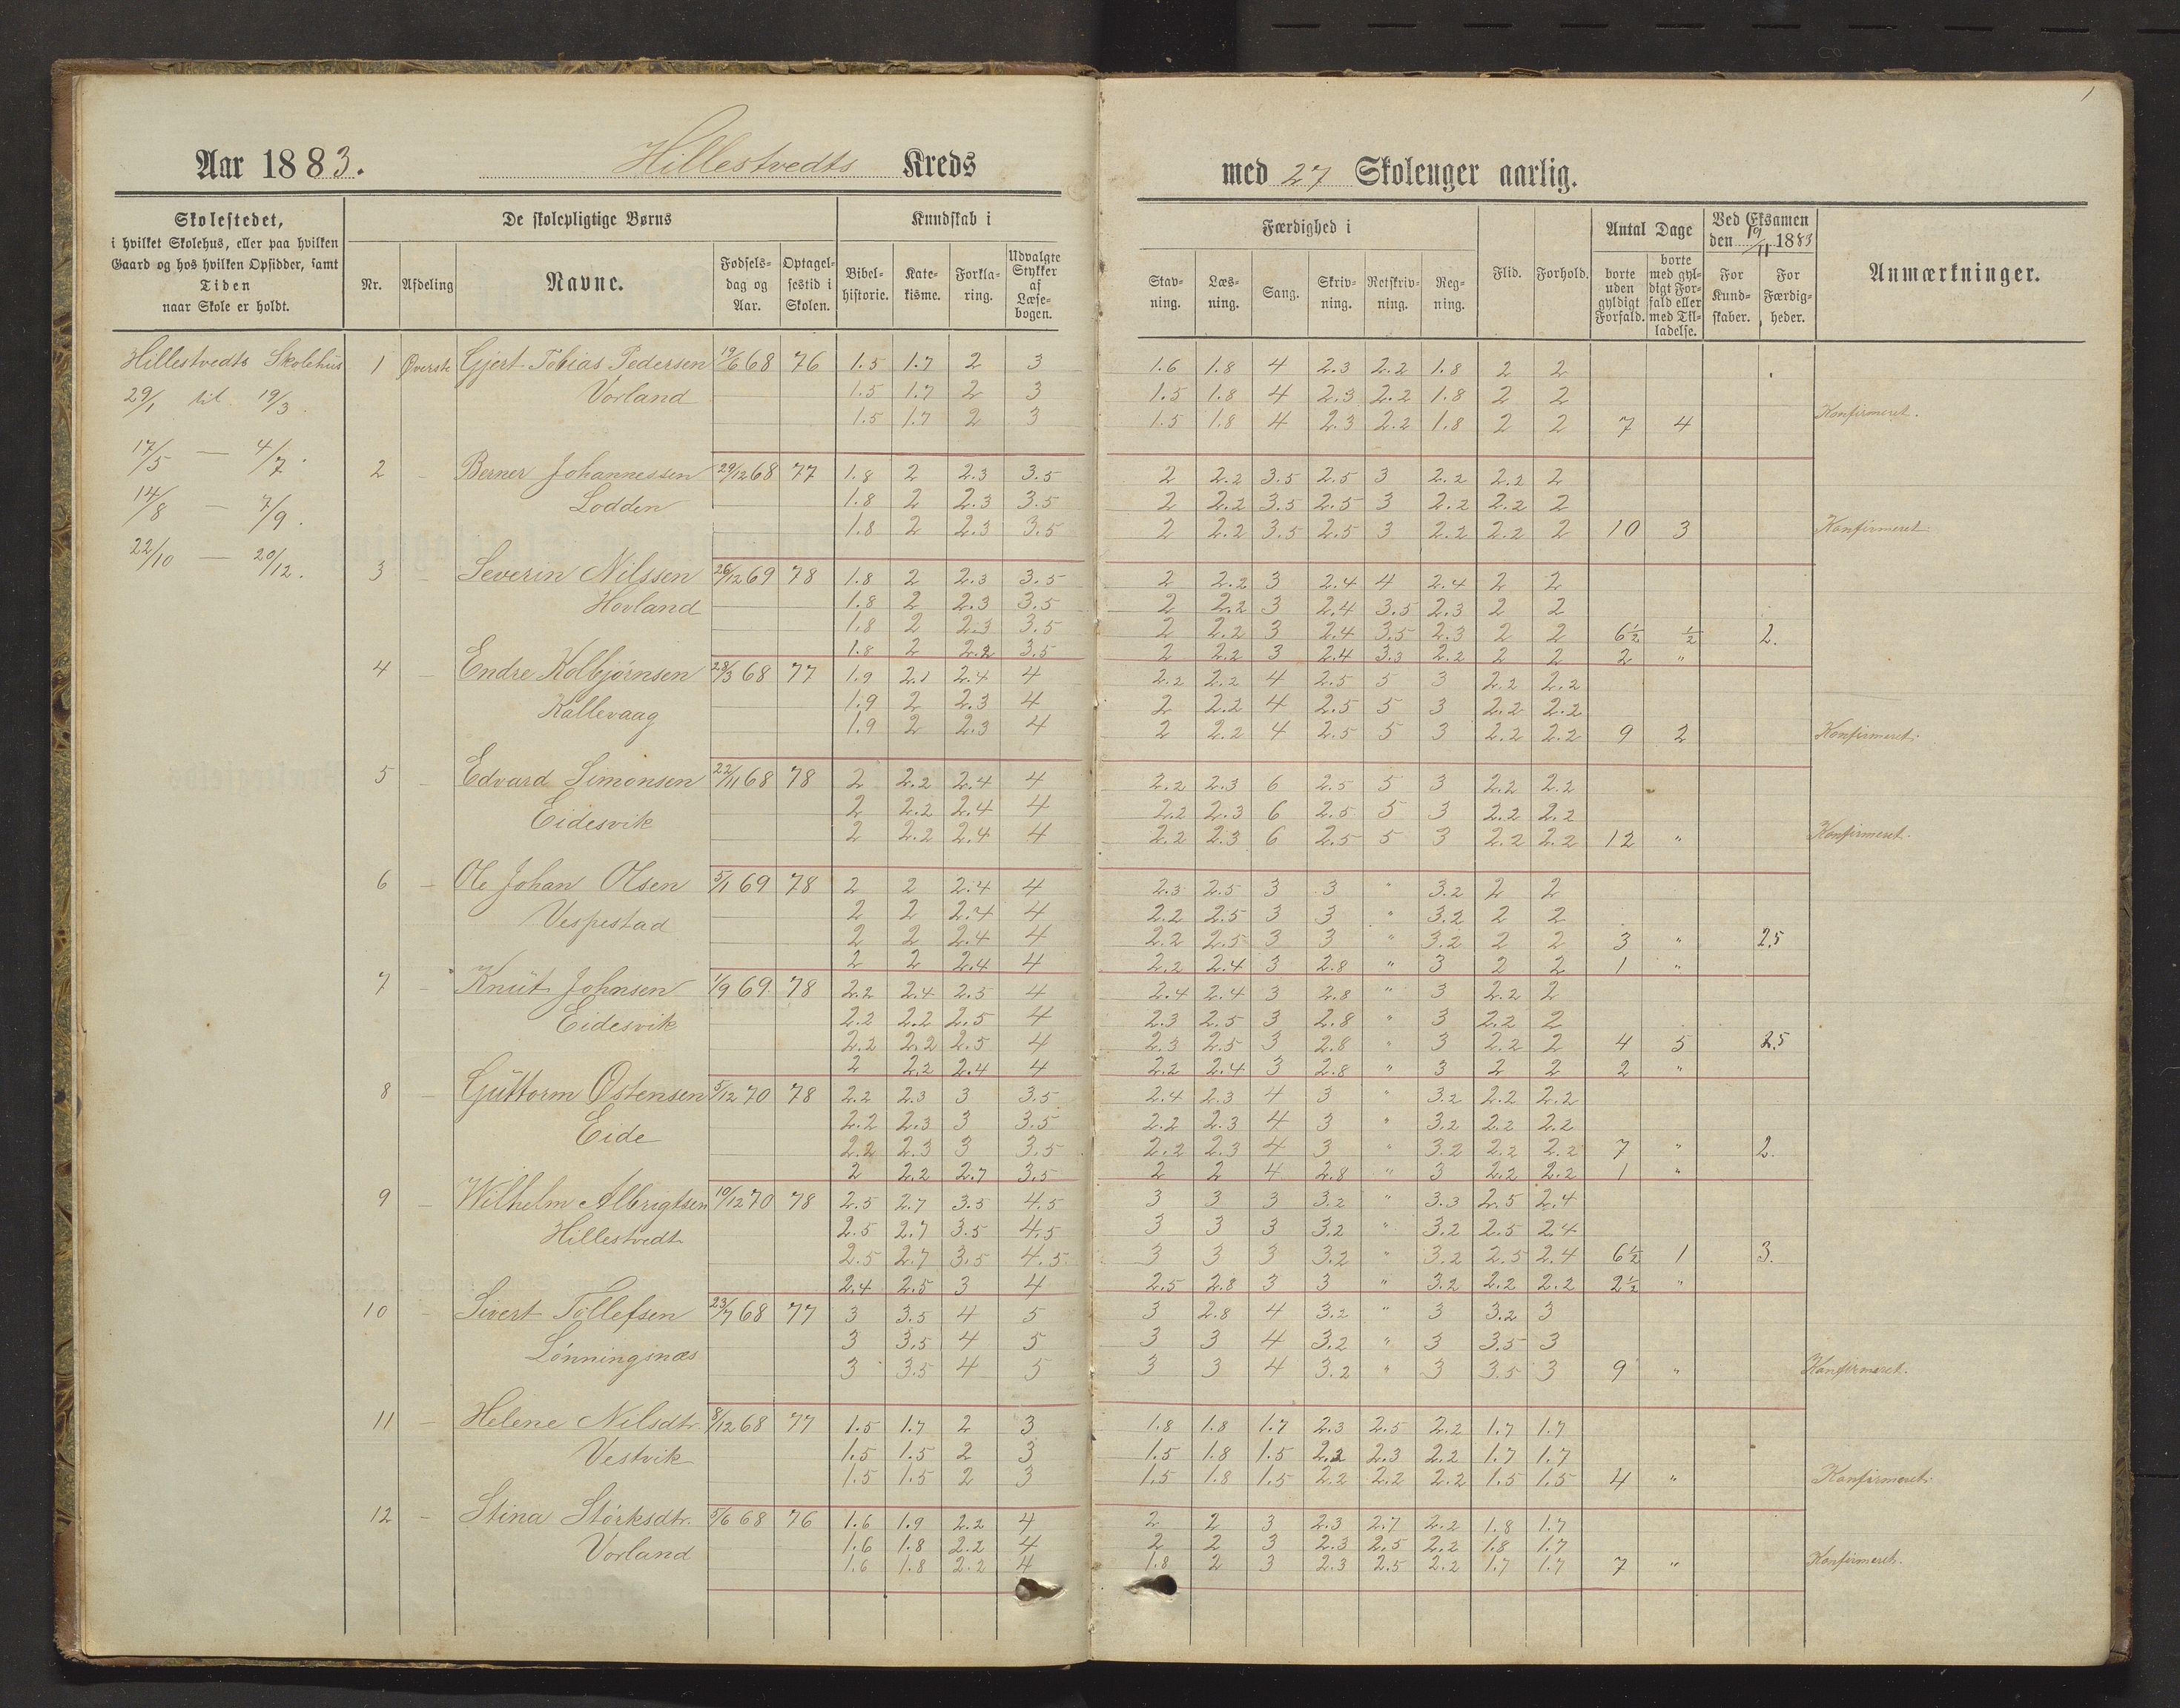 1
Aar 1883. Hillestvedts Kreds med 27 Skoleuger aarlig.
Skolestedet,
i hvilket Skolehus, eller paa hvilken
Gaard og hos hvilken Opsidder, samt
Tiden
naar Skole er holdt.
De skolepligtige Børns
Nr. Afdeling Navne. Fødsels-dag og Aar. Optagelsestid i Skolen.
Kundskab i
Bibelhistorie. Katekisme. Forklaring. Udvalgte Stykker af Læsebogen.
Færdighed i
Stavning. Læsning. Sang. Skrivning. Retskrivning. Regning.
Flid. Forhold.
Antal Dage
borte uden gyldigt Forfald. borte med gyldigt Forfald eller med Tilladelse.
Ved Eksamen
den 19/11 1883
For Kundskaber. For Færdigheder.
Anmærkninger.
Hillestvedts Skolehus
29/1 til 19/3.
17/5 — 4/7.
14/8 — 7/9.
22/10 — 20/12.
1 Øverste Gjert Tobias Pedersen 19/6 68 76 1.5 1.7 2 3 1.6 1.8 4 2.3 2.2 1.8 2 2
Vorland 1.5 1.7 2 3 1.5 1.8 4 2.3 2.2 1.8 2 2
1.5 1.7 2 3 1.5 1.8 4 2.3 2.2 1.8 2 2 7 4 Konfirmeret.
2 – Berner Johannessen 29/12 68 77 1.8 2 2.3 3.5 2 2.2 3.5 2.5 3 2.2 2.2 2
Lodden 1.8 2 2.3 3.5 2 2.2 3.5 2.5 3 2.2 2.2 2
1.8 2 2.3 3.5 2 2.2 3.5 2.5 3 2.2 2.2 2 10 3 Konfirmeret.
3 – Severin Nilssen 26/12 69 78 1.8 2 2.3 3.5 2 2.2 3 2.4 4 2.4 2 2
Hovland 1.8 2 2.3 3.5 2 2.2 3 2.4 3.5 2.3 2 2
1.8 2 2.3 3.5 2 2.2 3 2.4 3.5 2.3 2 2 6½ ½ 2.
1.8 2 2.2 3.5 2 2.2 3 2.4 3.3 2.2 2 2 2 "
4 – Endre Kolbjørnsen 28/3 68 77 1.9 2.1 2.4 4 2.2 2.2 4 2.5 5 3 2.2 2.2
Kallevaag 1.9 2 2.3 4 2 2.2 4 2.5 5 3 2.2 2.2
1.9 2 2.3 4 2 2.2 4 2.5 5 3 2.2 2.2 9 2 Konfirmeret.
5 – Edvard Simonsen 22/11 68 78 2 2.2 2.4 4 2.2 2.3 6 2.5 5 3 2.2 2.2
Eidesvik 2 2.2 2.4 4 2.2 2.3 6 2.5 5 3 2.2 2.2
2 2.2 2.4 4 2.2 2.3 6 2.5 5 3 2.2 2.2 12 " Konfirmeret.
6 – Ole Johan Olsen 5/1 69 78 2 2 2.4 4 2.3 2.5 3 3 " 3.2 2 2
Vespestad 2 2 2.4 4 2.2 2.5 3 3 " 3.2 2 2
2 2 2.4 4 2.2 2.5 3 3 " 3.2 2 2 3 " 2.5
2 2 2.4 4 2.2 2.4 3 2.8 " 3 2 2 1 "
7 – Knut Johnsen 1/9 69 78 2.2 2.4 2.5 4 2.4 2.4 3 2.8 " 3 2.2 2
Eidesvik 2.2 2.2 2.5 4 2.3 2.5 3 2.8 " 3 2.2 2
2.2 2.2 2.5 4 2.3 2.5 3 2.8 " 3 2.2 2 4 5 2.5
2 2.2 2.4 4 2.2 2.4 3 2.8 " 3 2 2 2 "
8 – Guttorm Ostensen 5/12 70 78 2.2 2.3 3 3.5 2.4 2.3 4 3 " 3.2 2.2 2.2
Eide 2.2 2.3 3 3.5 2.2 2.3 4 3 " 3.2 2.2 2.2
2.2 2.3 3 3.5 2.2 2.3 4 3 " 3.2 2.2 2.2 7 " 2.
2 2.2 2.7 3.5 2 2 4 2.8 " 3 2.2 2.2 1 "
9 – Wilhelm Albrigtsen 10/12 70 78 2.5 2.7 3.5 4.5 3 3 3 3.2 " 3.3 2.5 2.4
Hillestvedt 2.5 2.7 3.5 4.5 3 3 3 3.2 " 3.2 2.5 2.4
2.5 2.7 3.5 4.5 3 3 3 3.2 " 3.2 2.5 2.4 6½ 1 3.
2.4 2.5 3 4 2.5 2.8 3 3 " 3.2 2.2 2.2 2½ "
10 – Sivert Tollefsen 23/7 68 77 3 3.5 4 5 3 2.8 4 3.2 " 3 3.2 3
Lønningsnæs 3 3.5 4 5 3 3 4 3.2 " 3 3.5 3
3 3.5 4 5 3 3 4 3.2 " 3 3.5 3 9 " Konfirmeret.
11 – Helene Nilsdtr. 8/12 68 77 1.5 1.7 2 3 1.8 1.8 1.7 2.3 2.5 2.2 1.7 1.7
Vestvik 1.5 1.5 2 3 1.5 1.8 1.5 2.2 2.3 2.2 1.7 1.7
1.5 1.5 2 3 1.5 1.8 1.5 2.2 2.2 2.2 1.5 1.5 4 " Konfirmeret.
12 – Stina Størksdtr. 5/6 68 76 1.6 1.9 2.2 4 2 2 3 2.3 2.7 2.2 1.8 1.7
Vorland 1.6 1.8 2.2 4 2 2 3 2.3 2.5 2.2 1.8 1.7
1.6 1.8 2.2 4 1.8 2 3 2.3 2.5 2.2 1.7 1.7 7 " Konfirmeret.